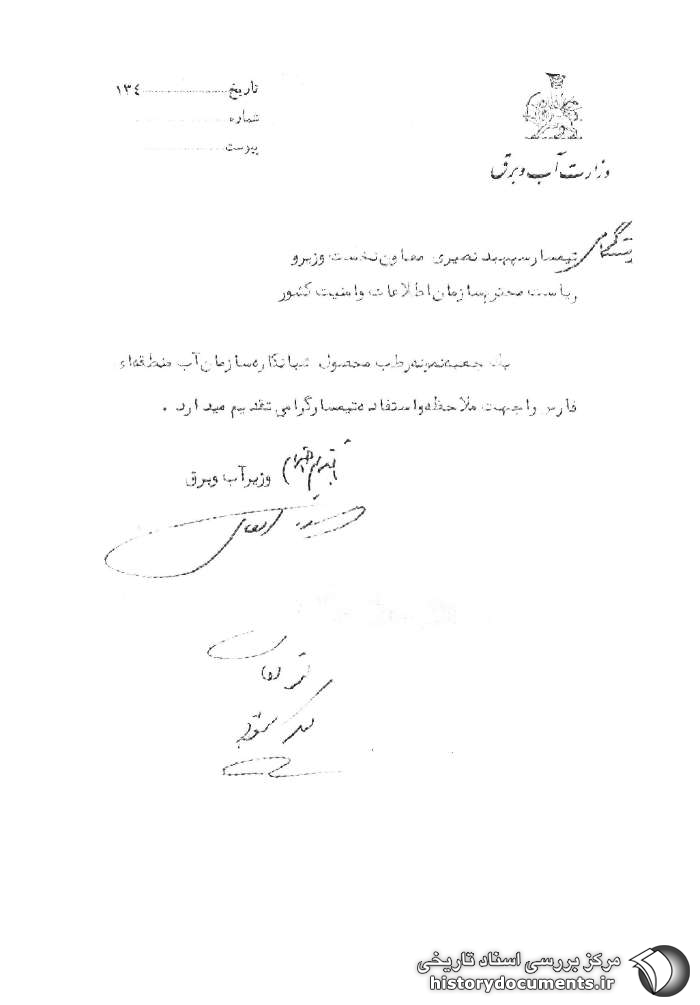 تاریخ ................ ۱۳٤
شماره ................
پیوست ................
وزارت آب و برق
تیمسار سپهبد نصیری معاون نخست وزیر و
ریاست محترم سازمان اطلاعات و امنیت کشور
یک جعبه نمونه رطب محصول شبانکاره سازمان آب منطقه‌ای
فارس را جهت ملاحظه و استفاده تیمسار گرامی تقدیم میدارد .
وزیر آب و برق
مرکز بررسی اسناد تاریخی
historydocuments.ir